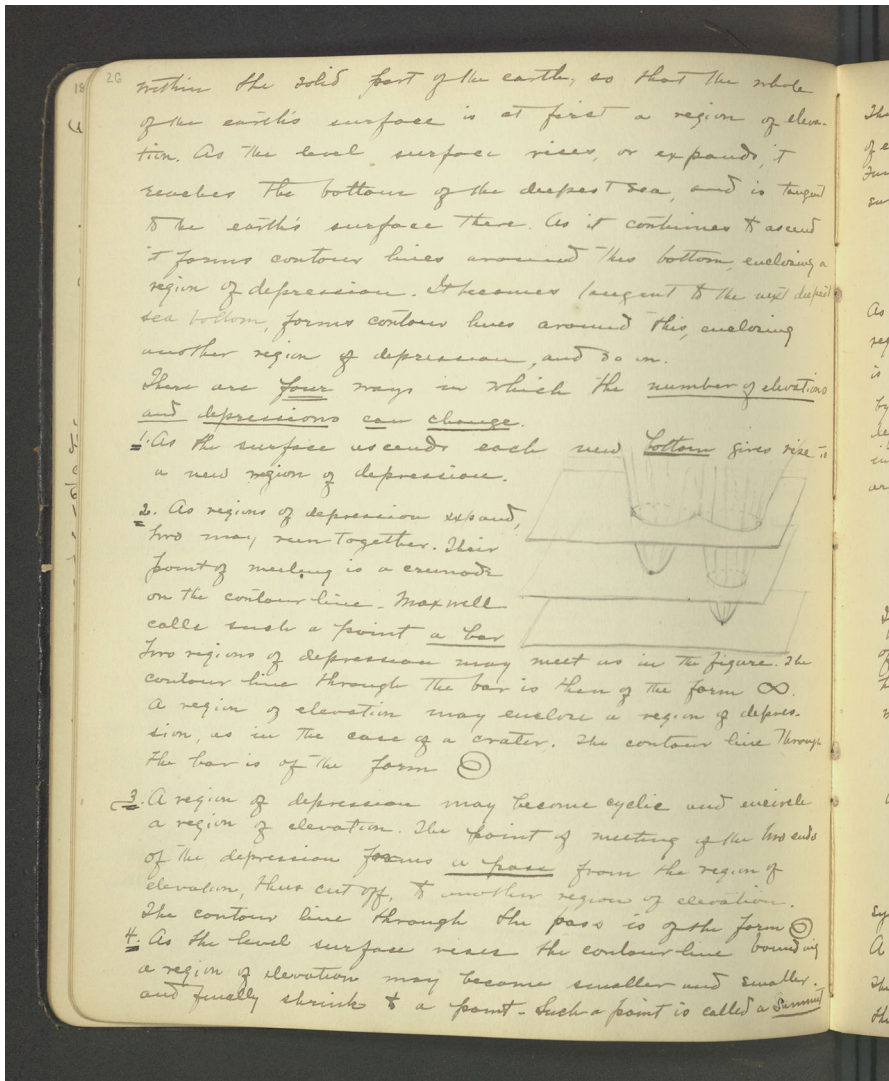 26
within the solid part of the earth, so that the whole
of the earth's surface is at first a region of eleva-
tion. As the level surface rises, or expands, it
reaches the bottom of the deepest sea, and is tangent
to the earth's surface there. As it continues to ascend
it forms contour lines around this bottom, enclosing a
region of depression. It becomes tangent to the next deepest
sea bottom, forms contour lines around this, enclosing
another region of depression, and so on.
There are four ways in which the number of elevations
and depressions can change.
1. As the surface ascends each new bottom gives rise to
a new region of depression.
2. As regions of depression expand,
two may run together. Their
point of meeting is a crunode
on the contour line. Maxwell
calls such a point a bar
Two regions of depression may meet as in the figure. The
contour line through the bar is then of the form ∞.
A region of elevation may enclose a region of depres-
sion, as in the case of a crater. The contour line through
the bar is of the form
3. A region of depression may become cyclic and encircle
a region of elevation. The point of meeting of the two ends
of the depression forms a pass from the region of
elevation, thus cut off, to another region of elevation.
The contour line through the pass is of the form
4. As the level surface rises the contour line bounding
a region of elevation may become smaller and smaller.
and finally shrink to a point - Such a point is called a Summit